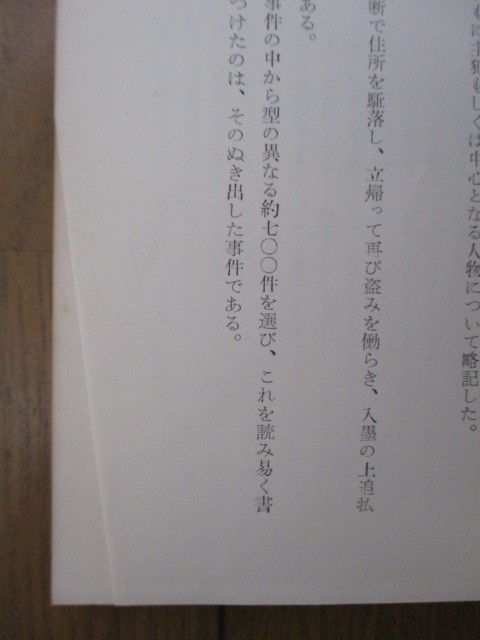 もに主犯もしくは中心となる人物について略記した。
断で住所を駈落し、立帰って再び盗みを働らき、入墨の上追払
ある。
事件の中から型の異なる約七〇〇件を選び、これを読み易く書
つけたのは、そのぬき出した事件である。